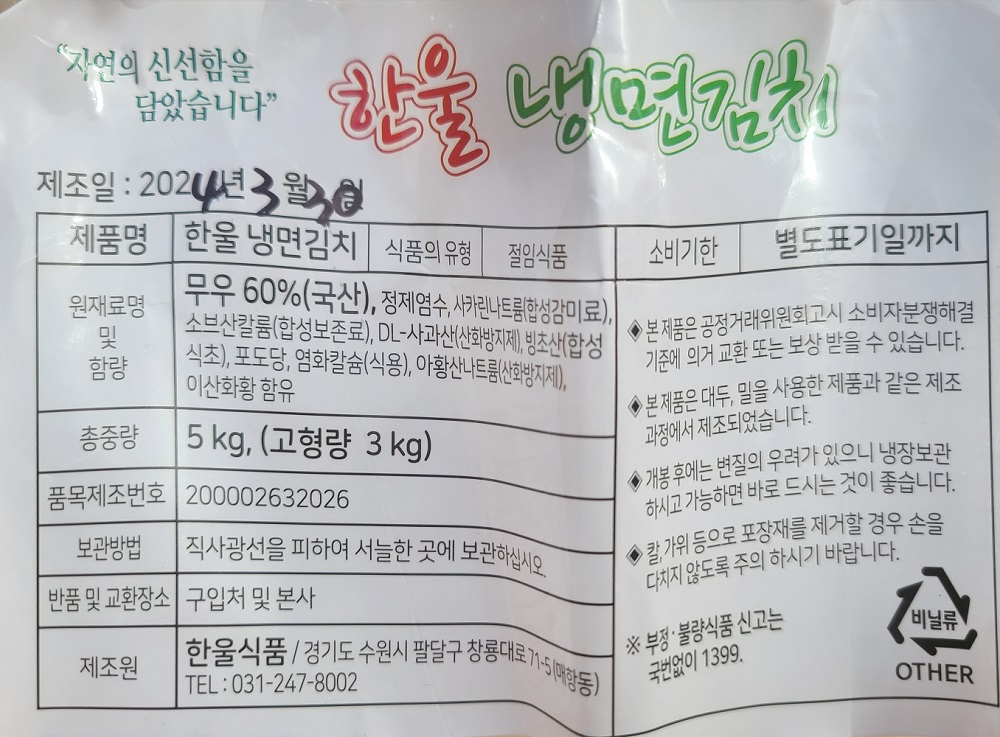 "자연의 신선함을
담았습니다"
한울 냉면김치
제조일 : 2024년 3월 30일
제품명 한울 냉면김치 식품의 유형 절임식품 소비기한 별도표기일까지
원재료명
및
함량
무우 60%(국산), 정제염수, 사카린나트륨(합성감미료),
소브산칼륨(합성보존료), DL-사과산(산화방지제), 빙초산(합성
식초), 포도당, 염화칼슘(식용), 아황산나트륨(산화방지제),
이산화황 함유
총중량 5 kg, (고형량 3 kg)
품목제조번호 200002632026
보관방법 직사광선을 피하여 서늘한 곳에 보관하십시오.
반품 및 교환장소 구입처 및 본사
제조원 한울식품 / 경기도 수원시 팔달구 창룡대로 71-5 (매향동)
TEL : 031-247-8002
◈ 본 제품은 공정거래위원회고시 소비자분쟁해결
기준에 의거 교환 또는 보상 받을 수 있습니다.
◈ 본 제품은 대두, 밀을 사용한 제품과 같은 제조
과정에서 제조되었습니다.
◈ 개봉 후에는 변질의 우려가 있으니 냉장보관
하시고 가능하면 바로 드시는 것이 좋습니다.
◈ 칼,가위 등으로 포장재를 제거할 경우 손을
다치지 않도록 주의 하시기 바랍니다.
※ 부정·불량식품 신고는
국번없이 1399.
비닐류
OTHER